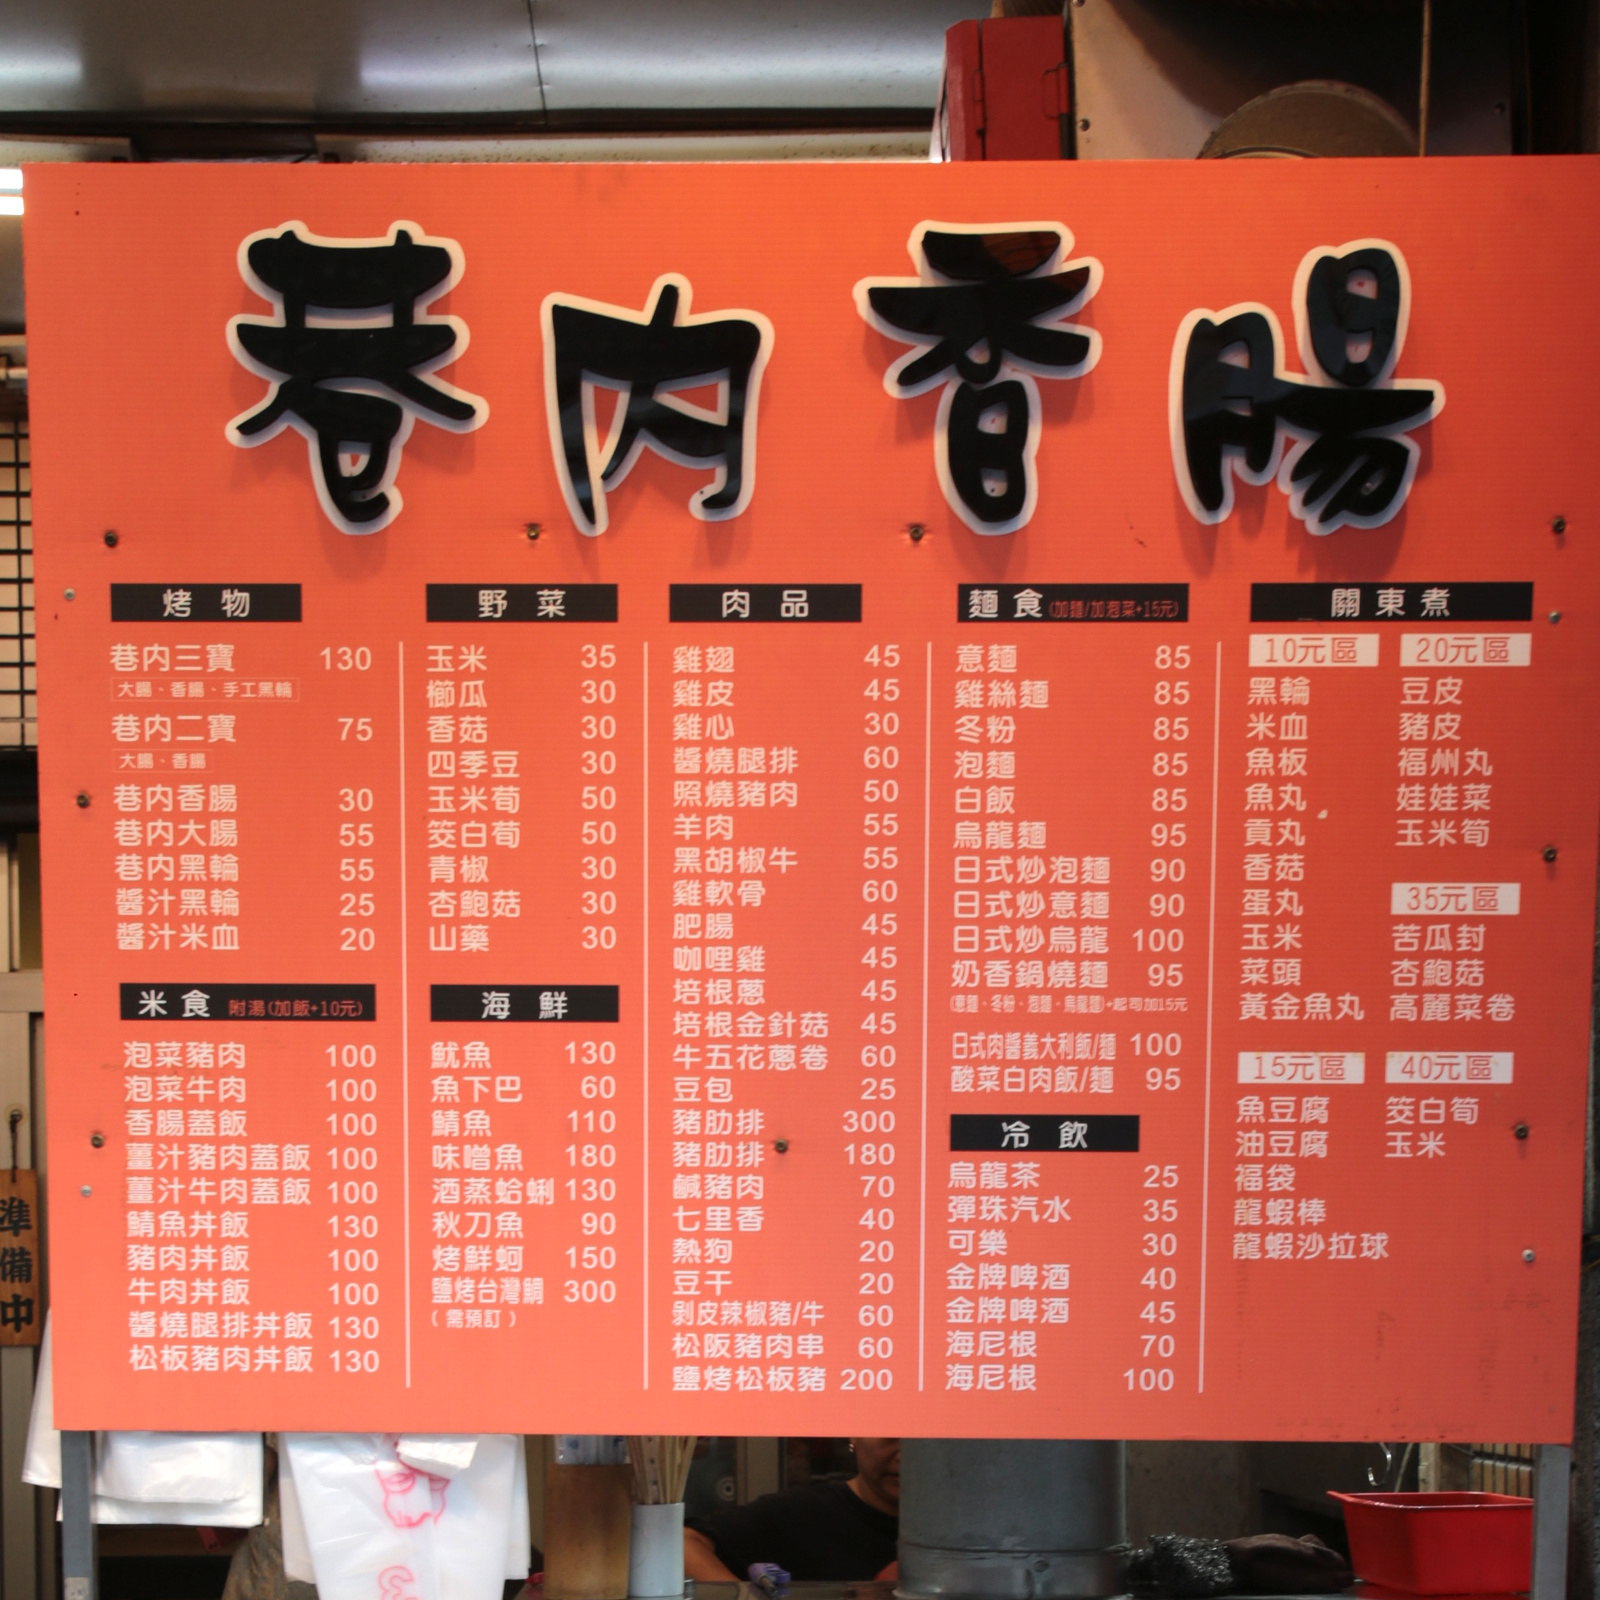 巷內香腸
烤物
巷內三寶 130
大腸、香腸、手工黑輪
巷內二寶 75
大腸、香腸
巷內香腸 30
巷內大腸 55
巷內黑輪 55
醬汁黑輪 25
醬汁米血 20
米食 附湯(加飯+10元)
泡菜豬肉 100
泡菜牛肉 100
香腸蓋飯 100
薑汁豬肉蓋飯 100
薑汁牛肉蓋飯 100
鯖魚丼飯 130
豬肉丼飯 100
牛肉丼飯 100
醬燒腿排丼飯 130
松板豬肉丼飯 130
野菜
玉米 35
櫛瓜 30
香菇 30
四季豆 30
玉米荀 50
筊白荀 50
青椒 30
杏鮑菇 30
山藥 30
海鮮
魷魚 130
魚下巴 60
鯖魚 110
味噌魚 180
酒蒸蛤蜊 130
秋刀魚 90
烤鮮蚵 150
鹽烤台灣鯛 300
(需預訂)
肉品
雞翅 45
雞皮 45
雞心 30
醬燒腿排 60
照燒豬肉 50
羊肉 55
黑胡椒牛 55
雞軟骨 60
肥腸 45
咖哩雞 45
培根蔥 45
培根金針菇 45
牛五花蔥卷 60
豆包 25
豬肋排 300
豬肋排 180
鹹豬肉 70
七里香 40
熱狗 20
豆干 20
剝皮辣椒豬/牛 60
松阪豬肉串 60
鹽烤松板豬 200
麵食 (加麵/加泡菜+15元)
意麵 85
雞絲麵 85
冬粉 85
泡麵 85
白飯 85
烏龍麵 95
日式炒泡麵 90
日式炒意麵 90
日式炒烏龍 100
奶香鍋燒麵 95
(意麵、冬粉、泡麵、烏龍麵)+起司加15元
日式肉醬義大利飯/麵 100
酸菜白肉飯/麵 95
冷飲
烏龍茶 25
彈珠汽水 35
可樂 30
金牌啤酒 40
金牌啤酒 45
海尼根 70
海尼根 100
關東煮
10元區
黑輪
米血
魚板
魚丸
貢丸
香菇
蛋丸
玉米
菜頭
黃金魚丸
15元區
魚豆腐
油豆腐
福袋
龍蝦棒
龍蝦沙拉球
20元區
豆皮
豬皮
福州丸
娃娃菜
玉米筍
35元區
苦瓜封
杏鮑菇
高麗菜卷
40元區
筊白筍
玉米
準備中